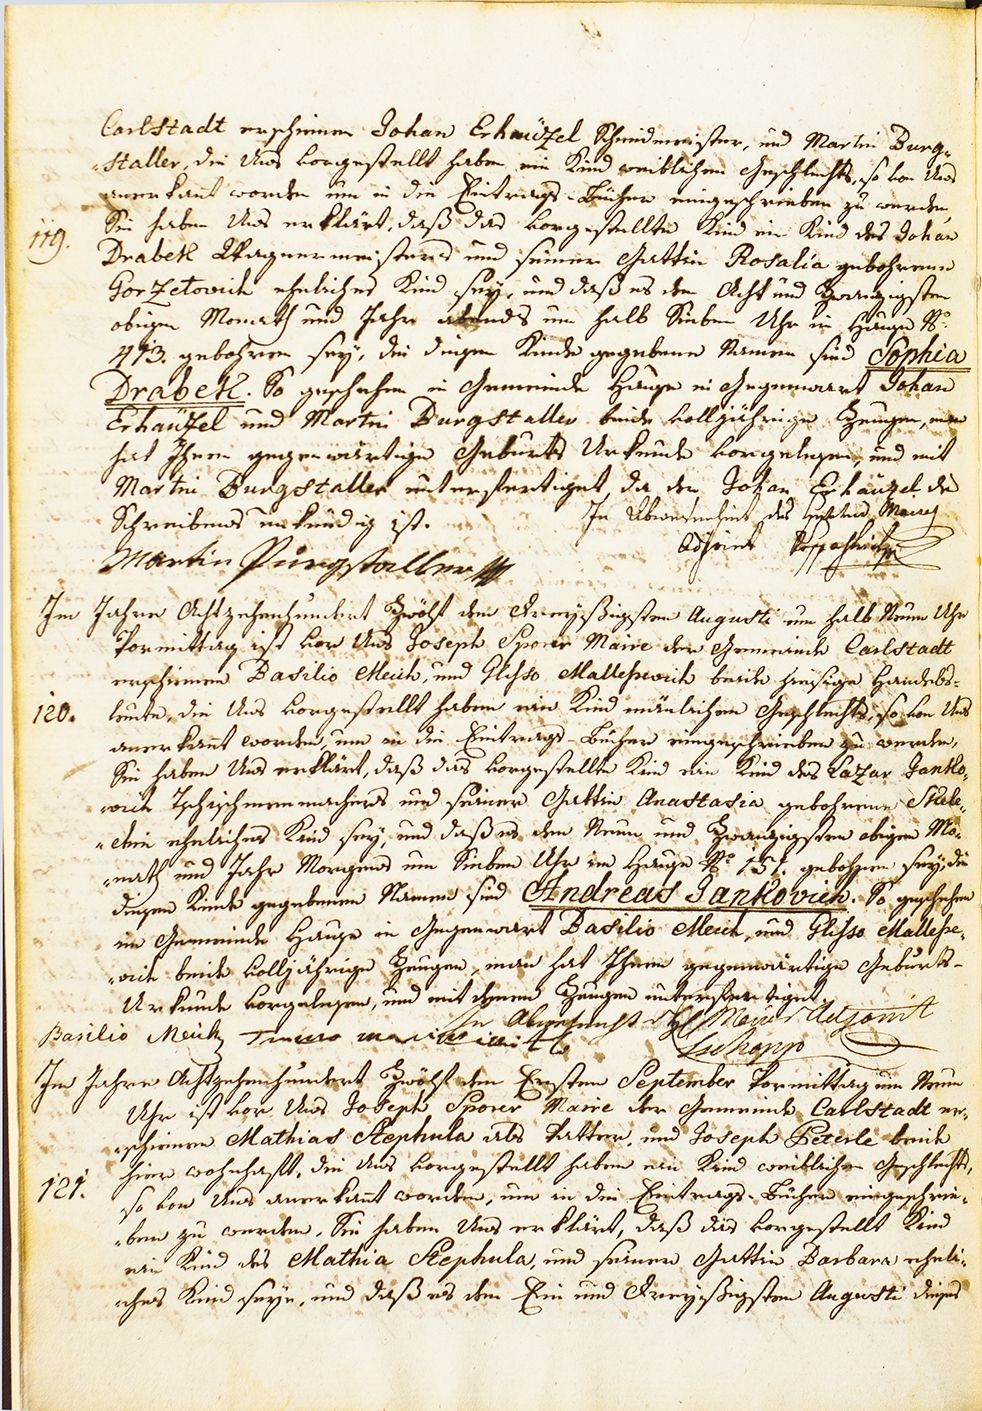 Carlstadt erschienen Johan Erhäüzel Schmidmeister, und Martin Burg-
staller, die Uns vorgestellt haben ein Kind weiblichen Geschlechts, so von Uns
anerkant worden um in die Eintrags-Bücher eingeschrieben zu werden,
Sie haben Uns erklärt, daß das vorgestellte Kind ein Kind des Johan
119.
Drabek Wagnermeisters und seiner Gattin Rosalia gebohrenen
Gorzetovich eheliches Kind sey, und daß es den Acht und Zwanzigsten
obigen Monath und Jahr abends um halb Sieben Uhr im Hause No.
413. gebohren sey, die diesen Kinde gegebene Namen sind Sophia
Drabek. So geschehen im Gemeinde Hause in Gegenwart Johan
Erhäüzel und Martin Burgstaller beide volljährige Zeugen, man
hat Ihnen gegenwärtige Geburts Urkunde vorgelesen, und mit
Martin Burgstaller unterfertiget, da der Johan Erhäüzel des
Schreibens unkündig ist. In Abwesenheit des Herrn Maire
Martin Purgstaller Adjoint
Im Jahre Achtzehenhundert Zwölf den Dreyßigsten Augusti um halb Neun Uhr
Vormittag ist vor Uns Joseph Sporer Maire der Gemeinde Carlstadt
erschienen Basilio Meich, und Glisso Mallessevich beide hiesige Handels-
120.
leute, die Uns vorgestellt haben ein Kind mänlichen Geschlechts, so von Uns
anerkant worden, um in die Eintrags-Bücher eingeschrieben zu werden,
Sie haben Uns erklärt, daß das vorgestellte Kind ein Kind des Lazar Janko-
vich Tschischmenmachers und seiner Gattin Anastasia gebohrene
-chin eheliches Kind sey, und daß es den Neun und Zwanzigsten obigen Mo-
-nath und Jahr Morgens um Sieben Uhr im Hause No. 151. gebohren sey, die
diesen Kinde gegebenen Namen sind Andreas Jankovich. So geschehen
im Gemeinde Hause in Gegenwart Basilio Meich, und Glisso Mallesse-
-vich beide volljährige Zeugen, man hat Ihnen gegenwärtige Geburts-
Urkunde vorgelesen, und mit denen Zeugen unterfertiget.
In Abwesenheit Maire Adjoint
Basilio Meich
Im Jahre Achtzehenhundert Zwölf den Ersten September Vormittag um Neun
Uhr ist vor Uns Joseph Sporer Maire der Gemeinde Carlstadt er-
-schienen Mathias Stephula als Vatter, und Joseph Peterle beide
hier wohnhaft, die Uns vorgestellt haben ein Kind weiblichen Geschlechts,
121.
so von Uns anerkant worden, um in die Eintrags-Bücher eingeschrie-
-ben zu werden. Sie haben Uns erklärt, daß das vorgestellt Kind
ein Kind des Mathia Stephula, und seiner Gattin Barbara eheli-
-ches Kind seye, und daß es den Ein und Dreyßigsten Augusti dieses